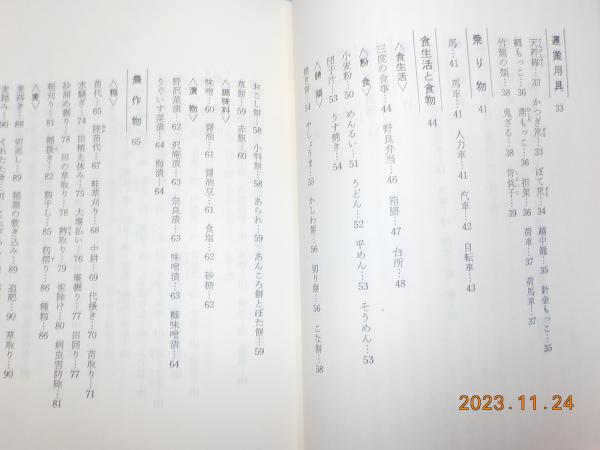 運搬用具 33
天秤棒…33 かつぎ棒…33 ぼて棒…34 越中籠…35 針金もっこ…35
縄もっこ…36 藁もっこ…36 担架…36 荷車…37 荷馬車…37
竹籠の類…38 鬼ざる…38 背負子…39
乗り物 41
馬…41 馬車…41 人力車…41 汽車…42 自転車…43
食生活と食物 44
〈食生活〉
三度の食事…44 野良弁当…46 箱膳…47 台所…48
〈粉食〉
小麦粉…50 めんるい…51 うどん…52 平めん…53 そうめん…53
団子汁…53 うす焼き…54
〈餅類〉
焼き餅…54 やしょうま…55 かしわ餅…56 切り餅…56 こな餅…58
おこし餅…58 小判餅…58 あられ…59 あんころ餅とぼた餅…59
草餅…59 赤飯…60
〈調味料〉
味噌…60 醤油…61 醤油豆…61 食塩…62 砂糖…62
〈漬物〉
野沢菜漬…62 沢庵漬…63 奈良漬…63 味噌漬…63 糠味噌漬…64
うぐいす菜漬…64 梅漬…64
農作物 65
〈稲〉
苗代…65 陸苗代…67 畦草刈り…68 中耕…69 代掻き…70 苗取り…71
水積ぎ…74 田植え休み…75 大堰払い…76 堰掘り…77 田回り…77
砂溜め掘り…78 田の草取り…78 稗取り…79 雀除け…80 病虫害防除…81
稲刈り…81 稲扱き…82 籾干し…85 籾摺り…86 種籾…86
〈麦〉
麦蒔き…88 切返し…89 稲藁の敷き込み…89 追肥…90 草取り…90
麦踏み…90
2023.11.24